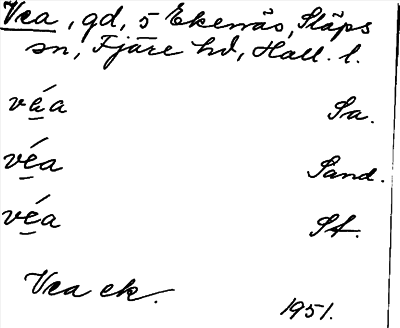 Vea, gd, 5 Ekenäs, Släps
sn, Fjäre hd, Hall. l.
véa Sa.
véa Sand.
véa St.
Vea ek. 1951.